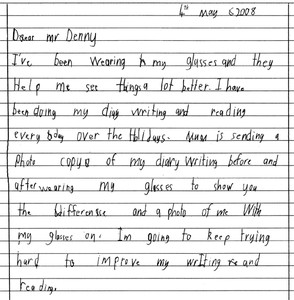 4th May 2008
Dear mr Denny
I've been wearing my glasses and they
Help me see things a lot better. I have
been doing my diary writing and reading
every day over the Holidays. Mum is sending a
Photo copy of my diary writing before and
after wearing my glasses to show you
the difference and a photo of me With
my glasses on. Im going to keep trying
hard to improve my writing and
reading.